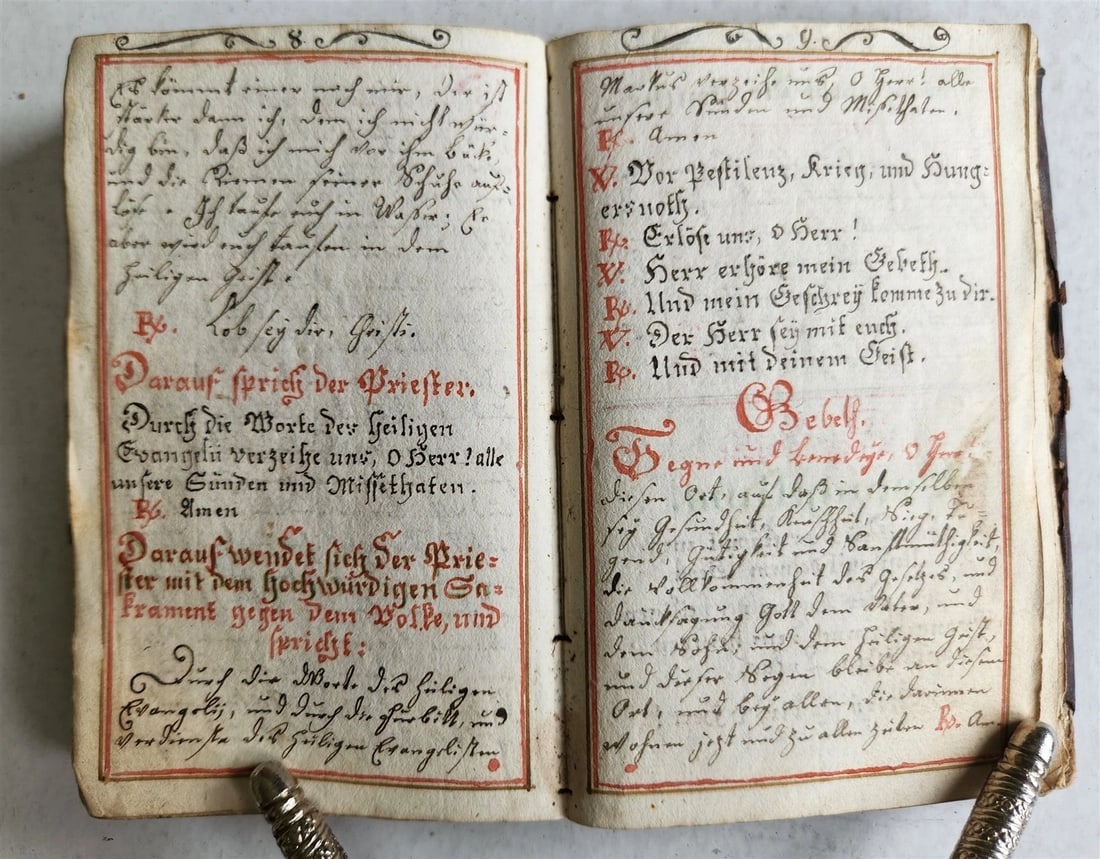 8
Es kömmt einer nach mir, der ist
stärker dann ich, dem ich nicht wür-
dig bin, daß ich mich vor ihm bücke,
und die Riemen seiner Schuhe auf-
löse. Ich taufe euch in Wasser; Er
aber wird euch taufen in dem
Heiligen Geist.
R. Lob sey dir, Christi.
Darauf sprich der Priester.
Durch die Worte des heiligen
Evangelii verzeihe uns, O Herr! alle
unsere Sünden und Missethaten.
R. Amen
Darauf wendet sich der Prie=
ster mit dem hochwürdigen Sa=
krament gegen dem Volke, und
spricht:
Durch die Worte des heiligen
Evangelij, und durch die Fürbitt, und
verdienste des heiligen Evangelisten
9.
Markus verzeihe uns, O Herr! alle
unsere Sünden und Missethaten.
R. Amen
V. Vor Pestilenz, Krieg, und Hung=
ersnoth.
R. Erlöse uns, O Herr!
V. Herr erhöre mein Gebeth.
R. Und mein Geschrey komme zu dir.
V. Der Herr sey mit euch.
R. Und mit deinem Geist.
Gebeth.
Segne und benedeye, O Herr!
diesen Ort, auf daß in demselben
sey Gesundheit, Keuschheit, Sieg, Tu-
gend, Gütigkeit und Sanftmüthigkeit,
die vollkommenheit des Gesetzes, und
dancksagung Gott dem Vater, und
dem Sohn, und dem heiligen Geist,
und dieser Segen bleibe an diesem
Ort, und bey allen, die darinnen
wohnen jetzt und zu allen zeiten R. Am